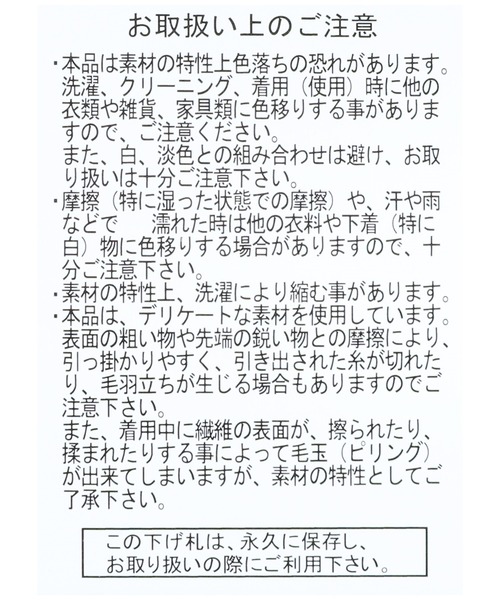 お取扱い上のご注意
・本品は素材の特性上色落ちの恐れがあります。
洗濯、クリーニング、着用（使用）時に他の
衣類や雑貨、家具類に色移りする事がありま
すので、ご注意ください。
また、白、淡色との組み合わせは避け、お取
り扱いは十分ご注意下さい。
・摩擦（特に湿った状態での摩擦）や、汗や雨
などで　濡れた時は他の衣料や下着（特に
白）物に色移りする場合がありますので、十
分ご注意下さい。
・素材の特性上、洗濯により縮む事があります。
・本品は、デリケートな素材を使用しています。
表面の粗い物や先端の鋭い物との摩擦により、
引っ掛かりやすく、引き出された糸が切れた
り、毛羽立ちが生じる場合もありますのでご
注意下さい。
また、着用中に繊維の表面が、擦られたり、
揉まれたりする事によって毛玉（ピリング）
が出来てしまいますが、素材の特性としてご
了承下さい。
この下げ札は、永久に保存し、
お取り扱いの際にご利用下さい。